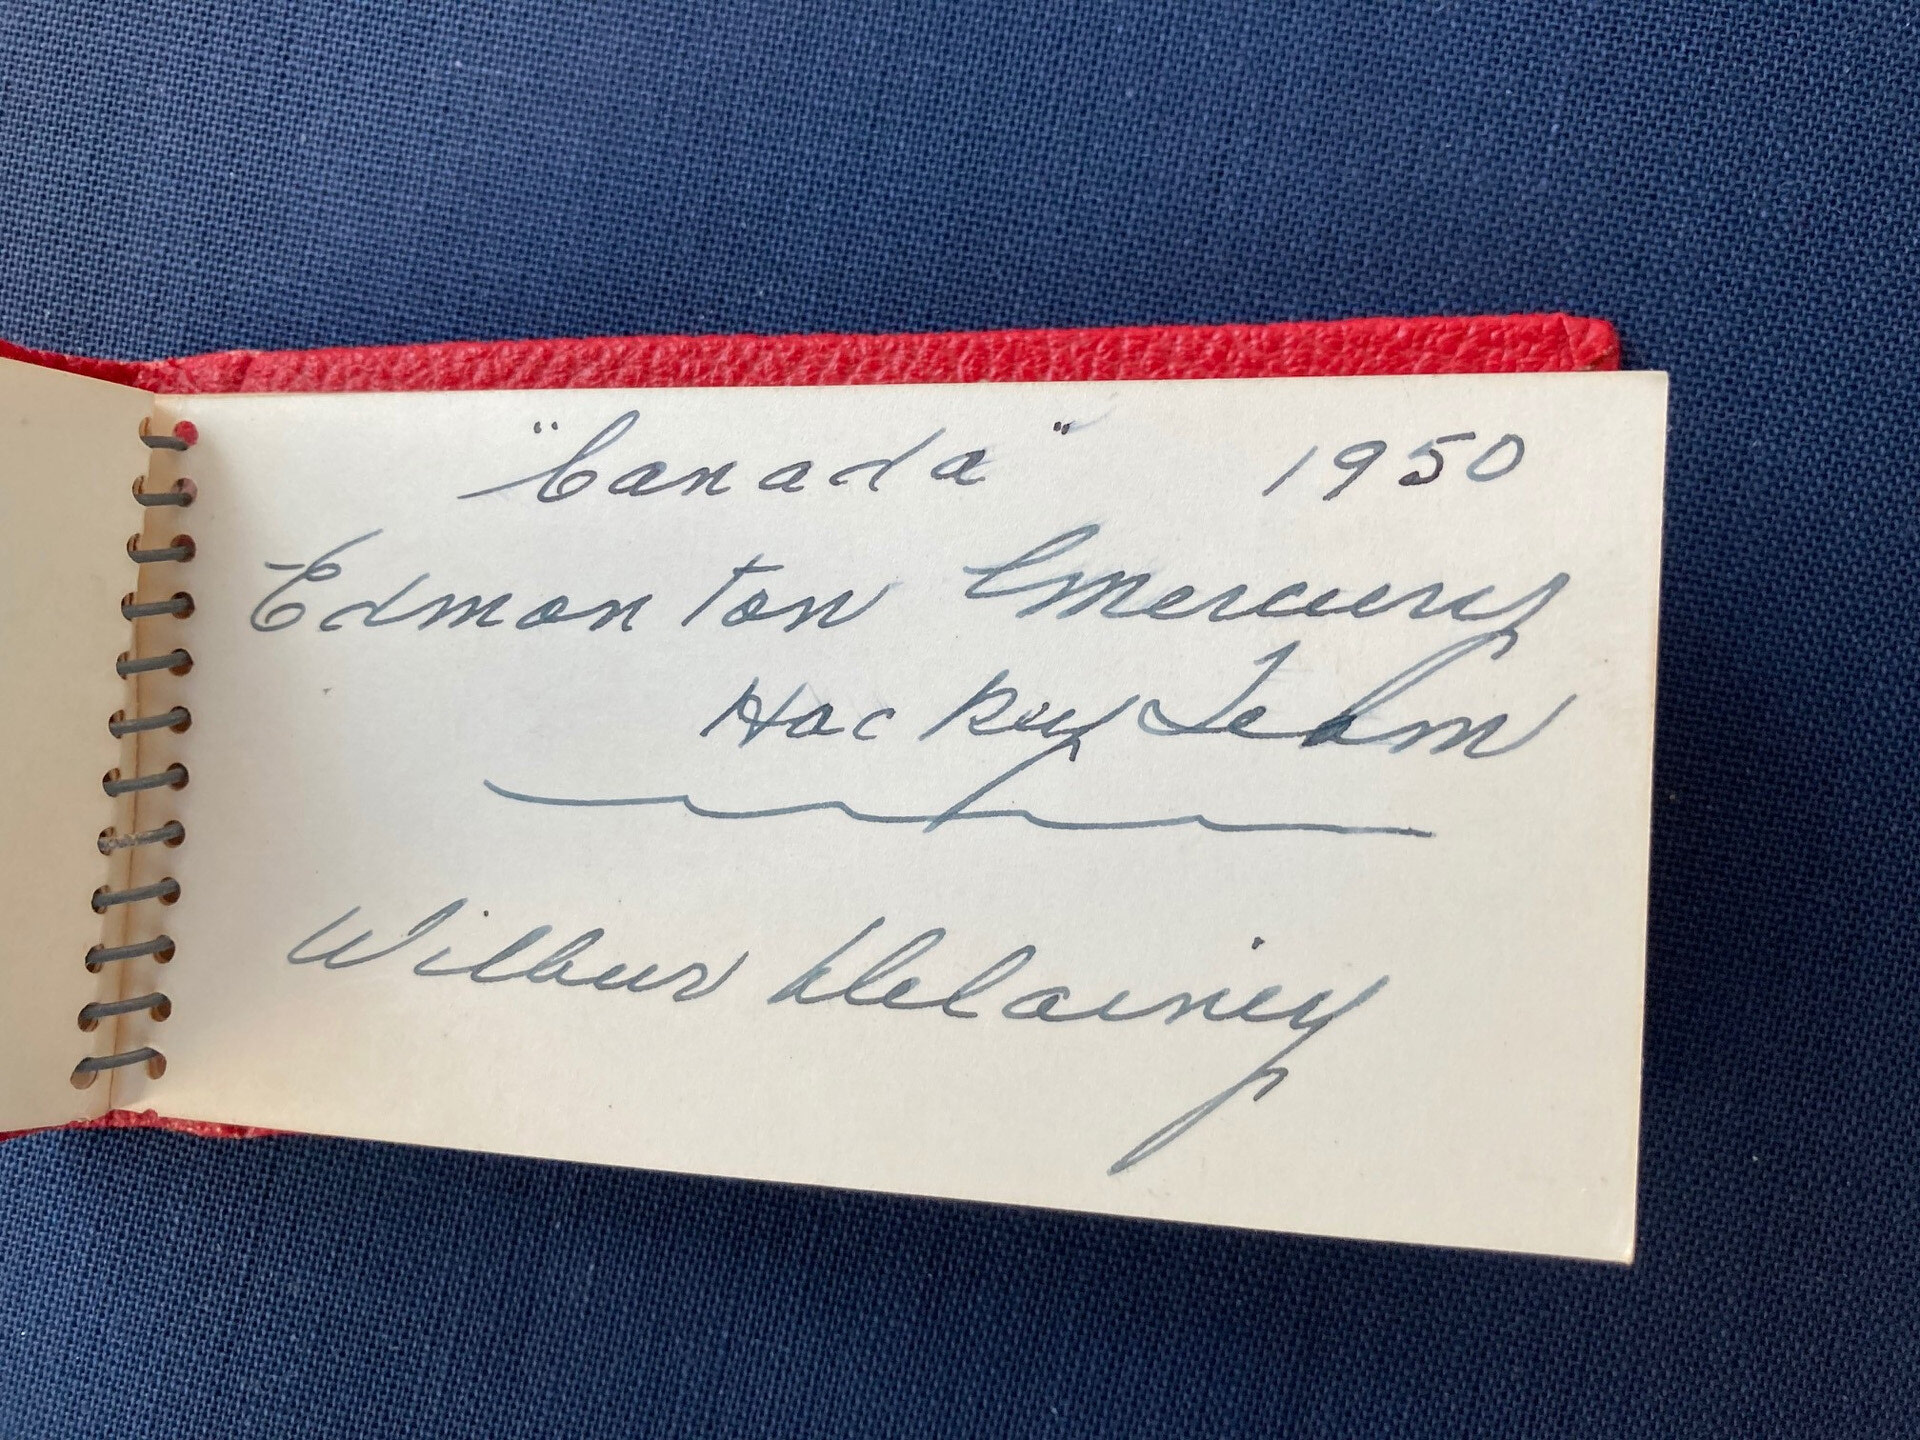 "Canada" 1950
Edmonton Mercury
Hockey Team
Wilbur Delainey